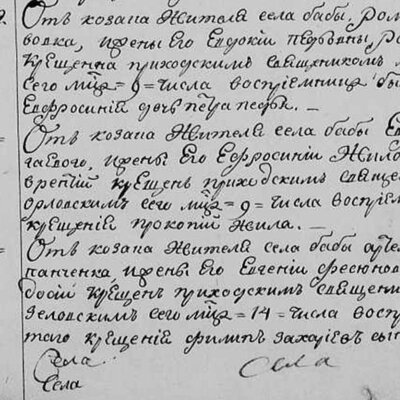 Отъ козака жителя села бабы, Ром
вовка, и жены Его Евдокiи
крещенна приходскимъ священикомъ
сего мца = 9 = числа воспрiемница бы
Евфросинiй дочь петра
Отъ козака жителя села бабы Е
гаевого, и жены Его Ефросинiи Жило
врентiй крещенъ приходскимъ священ
орловскимъ сего мца = 9 = числа воспрiем
крещенiй прокопiй жила.
Отъ козака жителя села бабы
панченка, и жены Его Евгенiи
досiй крещенъ приходскимъ священи
зеловскимъ сего мца = 14 = числа воспр
таго крещенiй филипъ захарiевъ сы
Села Села
Села